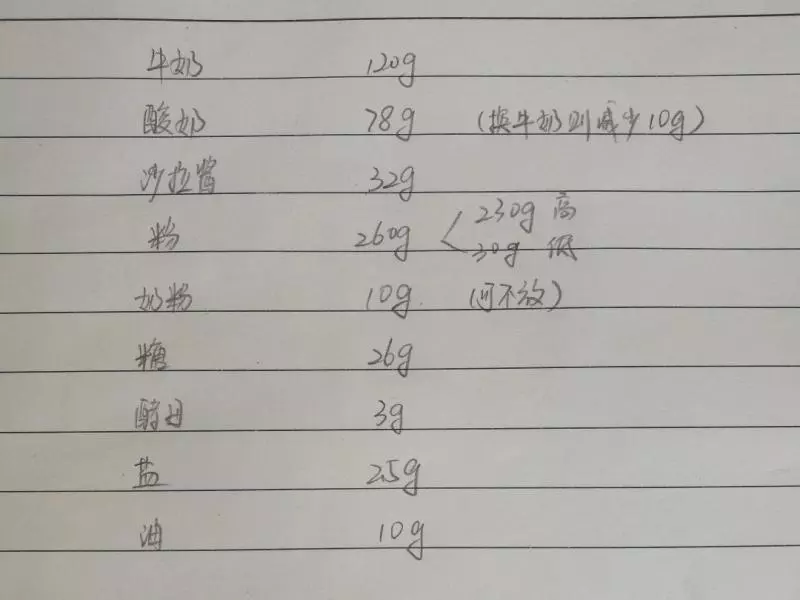 牛奶 120g
酸奶 78g (换牛奶则减少10g)
沙拉酱 32g
粉 260g < 230g 高
30g 低
奶粉 10g (可不放)
糖 26g
酵母 3g
盐 2.5g
油 10g